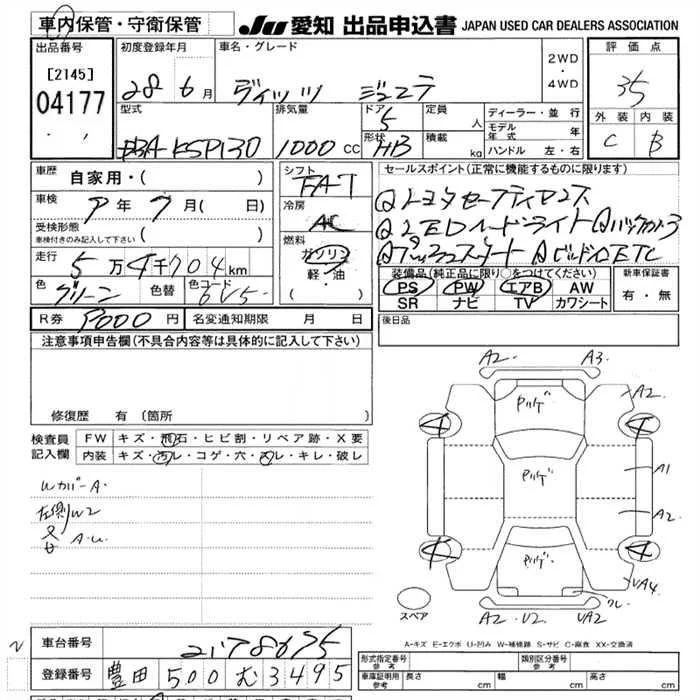 車内保管・守衛保管 JU 愛知 出品申込書 JAPAN USED CAR DEALERS ASSOCIATION
出品番号 初度登録年月 車名・グレード 2WD ・ 4WD 評価点
[2145] 28年6月 ヴィッツ ジュエラ 35
04177 型式 排気量 ドア 5 定員 人 ディーラー・並行 外装 内装
DBA-KSP130 1000cc 形状 HB 積載 kg モデル年式 年 C B
ハンドル 左・右
車歴 自家用・( ) シフト FAT セールスポイント(正常に機能するものに限ります)
車検 7年7月(日) 冷房 AC Qトヨタセーフティセンス
受検形態 車検付きのみ記入して下さい ( ) 燃料 ガソリン 軽・油 ・( ) Q LEDヘッドライト Qバックカメラ
走行 5万4千704km Qプッシュスタート Qビルトイン ETC
色 グリーン 色替 色コード 6V5 装備品(純正品に限り○をつけてください) 新車保証書
PS PW エアB AW 有・無
SR ナビ TV カワシート
R券 9000円 名変通知期限 月 日 後日品
注意事項申告欄(不具合内容等は具体的に記入して下さい)
修復歴 有(箇所
検査員記入欄 FW キズ・飛石・ヒビ割・リペア跡・X要
内装 キズ・汚レ・コゲ・穴・スレ・キレ・破レ
Wカバー A.
左側W2
A.U
A2. A3.
A2
4 4
A1
A2.
4 4
VA4
クレ
A2. U2. VA2
スペア
A-キズ E-エクボ U-凹み W-補修跡 S-サビ C-腐食 XX-交換済
車台番号 2178675
登録番号 豊田 500 む 3495
形式指定番号 参考 類別区分番号 参考
車庫証明用 参考 長さ cm 幅 cm 高さ cm